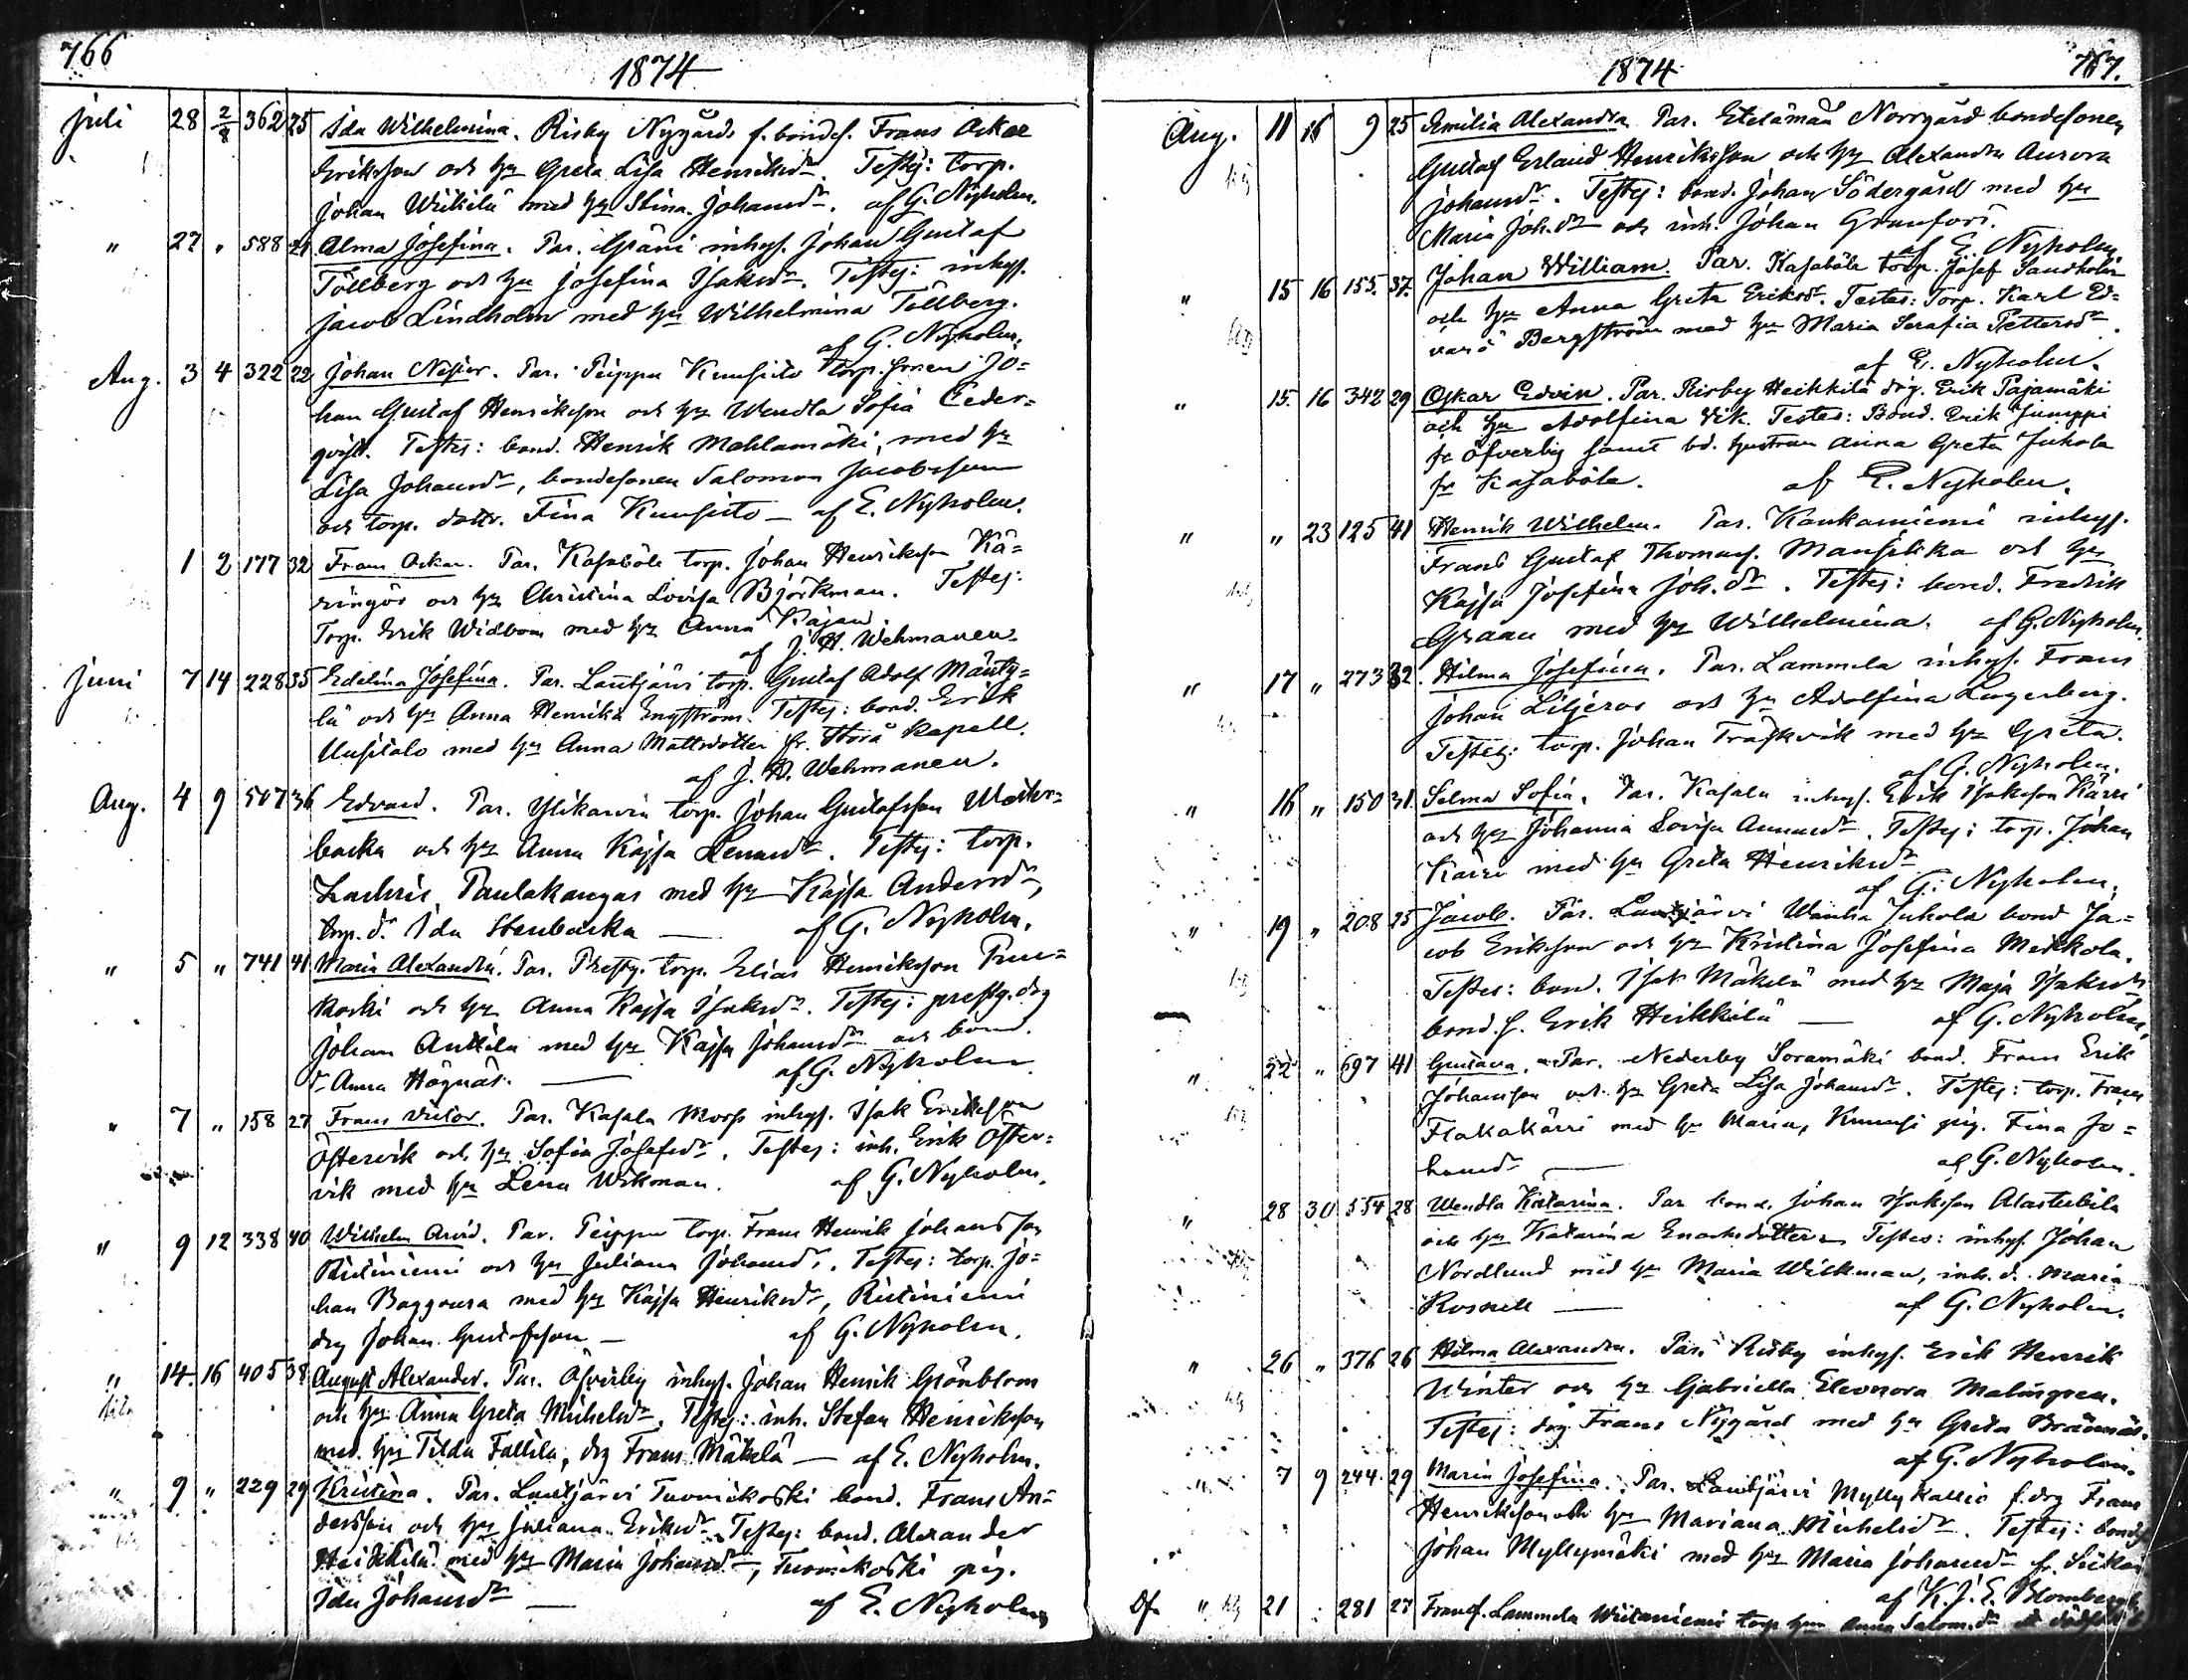 766
1874
Juli 28 2/8 362 25 Ida Wilhelmina. Risby Nygårds f. bondes. Frans Oskar
Eriksson och hu Greta Lisa Henriksdr. Testes: torp.
Johan Wiikilä med hu Stina Johansdr. af G. Nyholm.
" 27 " 588 21 Alma Josefina. Par. inhys. Johan Gustaf
Töllberg och hu Josefina Isaksdr. Testes: inhys.
Jacob Lindholm med hu Wilhelmina Töllberg.
af G. Nyholm.
Aug. 3 4 322 22 Johan Par. Peippu Kuusisto torp. sonen Jo-
han Gustaf Henriksson och hu Wendla Sofia Ceder-
qvist. Testes: bond. Henrik Mahlamäki med hu
Lisa Johansdr, bondesonen Salomon Jacobsson
och torp. dottr. Fina Kuusisto — af E. Nyholm.
1 2 177 32 Frans Oskar. Par. Kasaböle torp. Johan Henriksson Kä-
ringös och hu Christina Lovisa Björkman. Testes:
Torp. Erik Widbom med hu Anna Kajan.
af J. H. Wehmanen.
Juni 7 14 228 35 Edelina Josefina. Par. Lautjärvi torp. Gustaf Adolf Mänty-
lä och hu Anna Henrika Engström. Testes: bond. Erik
Uusitalo med hu Anna Mattsdotter fr. Storå Kapell.
af J. H. Wehmanen.
Aug. 4 9 507 36 Edvard. Par. torp. Johan Gustafsson
backa och hu Anna Kajsa Lenasdr. Testes: torp.
Zachris Paulakangas med hu Kajsa Andersdr,
torp. d. Ida Stenbacka — af G. Nyholm.
" 5 " 741 41 Maria Alexandra. Par. Prestg. torp. Elias Henriksson
koski och hu Anna Kajsa Isaksdr. Testes: prestg. drg
Johan Anttila med hu Kajsa Johansdr och bond.
dr Anna Högnäs. — af G. Nyholm.
" 7 " 158 27 Frans Victor. Par. Kasala Morss inhys. Isak Eriksson
Östervik och hu Sofia Josefsdr. Testes: inh. Erik Öster-
vik med hu Lena Wikman. af G. Nyholm.
" 9 12 338 40 Wilhelm Arvid. Par. Peippu torp. Frans Henrik Johansson
Riitiniemi och hu Juliana Johansdr. Testes: torp. Jo-
han Baggoura med hu Kajsa Henriksdr, Riitiniemi
drg Johan Gustafsson — af G. Nyholm.
" 14. 16 405 38 August Alexander. Par. Öfverby inhys. Johan Henrik Grönblom
och hu Anna Greta Michelsdr. Testes: inh. Stefan Henriksson
med hu Tilda Fallila, drg Frans Mäkelä — af E. Nyholm.
" 9 " 229 29 Kristina. Par. Lautjärvi Tuomikoski bond. Frans An-
dersson och hu Juliana Eriksdr. Testes: bond. Alexander
Heikkilä med hu Maria Johansdr, Tuomikoski pig.
Ida Johansdr — af E. Nyholm
1874
767.
Aug. 11 16 9 25 Emilia Alexandra. Par. Etelämaa Norrgård bondesonen
Gustaf Erland Henriksson och hu Alexandra Aurora
Johansdr. Testes: bond. Johan Södergård med hu
Maria Joh.dr och inh. Johan Granfors.
af E. Nyholm
" 15 16 155. 37. Johan William. Par. Kasaböle torp. Josef Sandholm
och hu Anna Greta Eriksdr. Testes: Torp. Karl Ed-
vard Bergström med hu Maria Serafia Pettersdr.
af E. Nyholm.
" 15. 16 342 29 Oskar Edvin. Par. Risby Heikkilä drg. Erik Pajamäki
och hu Adolfina Vik. Testes: Bond. Erik Jumppi
fr Öfverby samt bd. hustrun Anna Greta Juhola
fr Kasaböle. af E. Nyholm.
" " 23 125 41 Henrik Wilhelm. Par. Kankaniemi inhys.
Frans Gustaf Thomass. Mansikka och hu
Kajsa Josefina Joh.dr. Testes: bond. Fredrik
Graan med hu Wilhelmina. af G. Nyholm.
" 17 " 273 32. Hilma Josefina. Par. Lammela inhys. Frans
Johan Liljeros och hu Adolfina Lagerberg.
Testes: torp. Johan Träskvik med hu Greta.
af G. Nyholm.
" 16 " 150 31. Selma Sofia. Par. Kasala inhys. Erik Isaksson Kärri
och hu Johanna Lovisa Annasdr. Testes: torp. Johan
Kärri med hu Greta Henriksdr
af G. Nyholm.
" 19 " 208 25 Jacob. Par. Lautjärvi Wanha Juhola bond Ja-
cob Eriksson och hu Kristina Josefina Mikkola.
Testes: bond. Isak Mäkelä med hu Maja Isaksdr
bond. s. Erik Heikkilä — af G. Nyholm.
" 22 " 697 41 Gustava. Par. Nederby Soramäki bond. Frans Erik
Johansson och hu Greta Lisa Johansdr. Testes: torp. Frans
Flakakärri med hu Maria, Kuuusi pig. Fina Jo-
hansdr — af G. Nyholm.
" 28 30 554 28 Wendla Katarina. Par bond. Johan Isaksson Alastubila
och hu Katarina Enochsdotter. Testes: inhys. Johan
Nordlund med hu Maria Wilkman, inh. d. Maria
Rosnell — af G. Nyholm.
" 26 " 376 26 Hilma Alexandra. Par. Risby inhys. Erik Henrik
Winter och hu Gabriella Eleonora Malmgren.
Testes: drg Frans Nygård med hu Greta Brännäs.
af G. Nyholm.
" 7 9 244 29 Maria Josefina. Par. Lautjärvi Myllykallio f. drg Frans
Henriksson och hu Mariana Michelsdr. Testes: bonds
Johan Myllymäki med hu Maria Johansdr fr.
af K. J. E. Blomberg
Df " 21 : 281 27 Lammela torp hu Anna Salom.dr